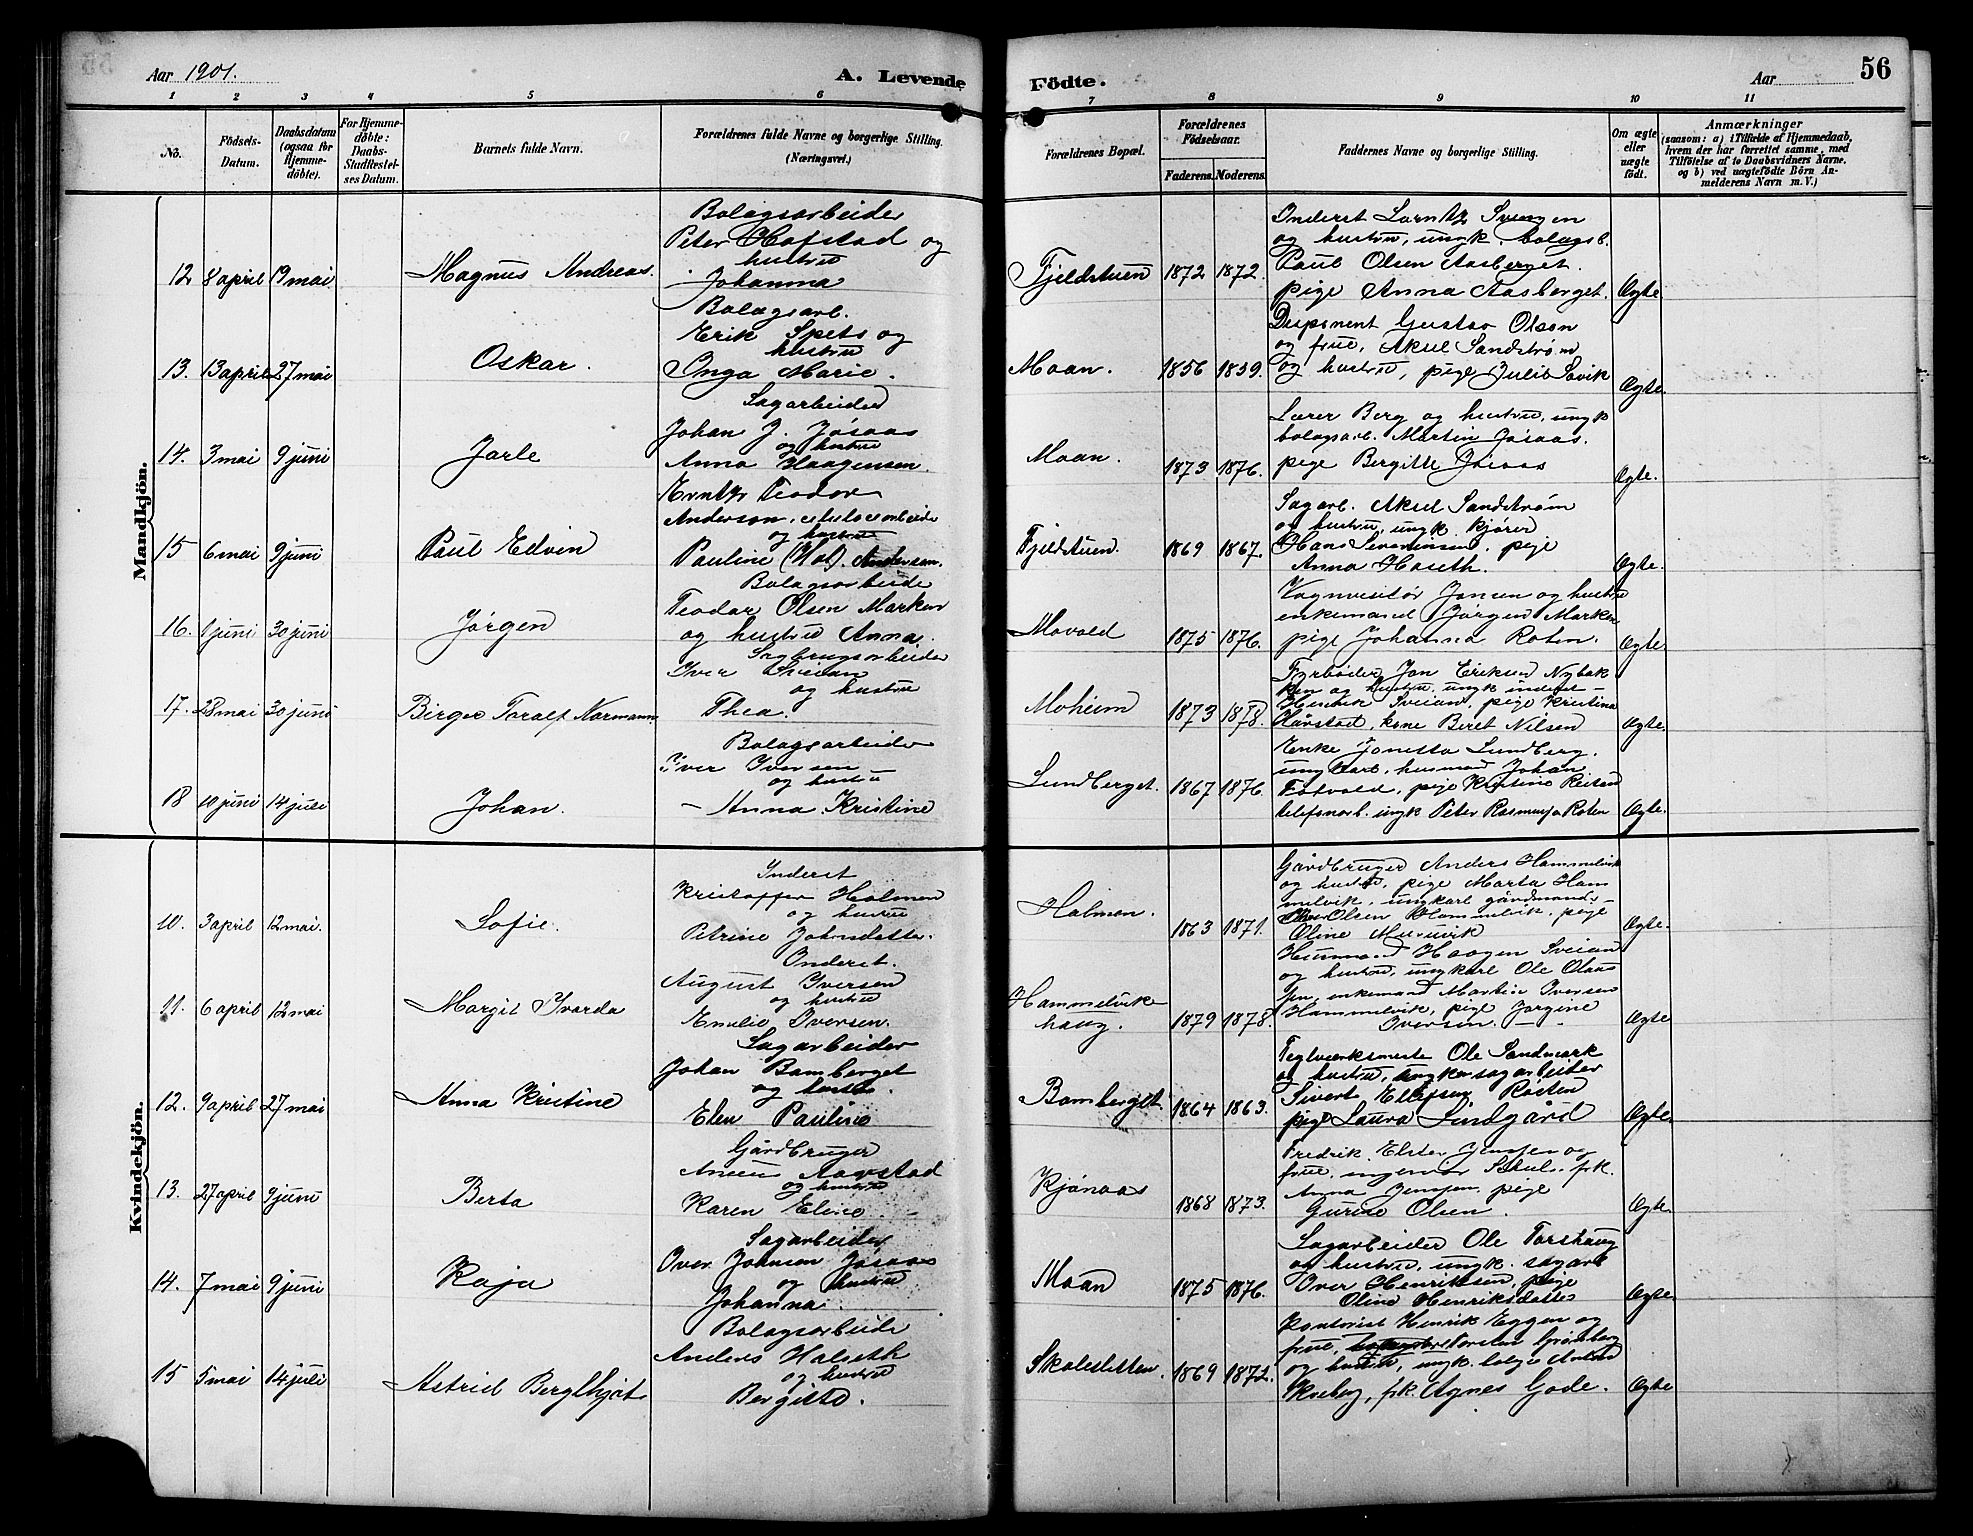 Aar 1901.
A. Levende Födte.
Aar
56
1 2 3 4 5 6 7 8 9 10 11
No.
Födsels-Datum.
Daabsdatum (ogsaa for Hjemme-döbte).
For Hjemme-döbte: Daabs-Stadfæstel-ses Datum.
Barnets fulde Navn.
Forældrenes fulde Navne og borgerlige Stilling. (Næringsvei.)
Forældrenes Bopæl.
Forældrenes Födselsaar.
Faderens. Moderens.
Faddernes Navne og borgerlige Stilling.
Om ægte eller uægte födt.
Anmærkninger
(saasom: a) i Tilfælde af Hjemmedaab, hvem der har forrettet samme, med Tilföielse af to Daabsvidners Navne, og b) ved uægtefödte Börn Anmelderens Navn m. V.)
Mandkjön.
12 8 april 19 mai
Magnus Andreas.
Bolagsarbeider
Peter Hofstad og
hustru
Johanna
Fjeldstuen 1872 1872.
Inderst Larntz Svingen
og hustru, ungk. bolagsb.
Paul Olsen Aasberget.
pige Anna Aasberget.
Ægte
13. 13 april 27 mai
Oskar.
Bolagsarb.
Erik Spets og
hustru
Inga Marie.
Moan. 1856 1859.
Disponent Gustav Olsen
og frue, Aksel Sandstrøm
og hustru, pige Julie Savik
Ægte.
14. 3 mai 9 juni
Jarle
Sagarbeider
Johan J. Jøsaas
og hustru
Anna Haagensen.
Moan. 1873 1876.
Lærer Berg og hustru, ungk
bolagsarb. Martin Jøsaas.
pige Bergitte Jøsaas
Ægte.
15 6 mai 9 juni
Paul Edvin
Teodor
Anderson,
og hustru
Pauline (Hol). Anderson.
Fjeldstuen. 1869 1867.
Sagarb. Aksel Sandstrøm
og hustru, ungk. kjører
Hans Severinsen. pige
Anna Haseth.
Ægte.
16. 1 juni 30 juni
Jørgen
Bolagsarbeider
Teodor Olsen Marken
og hustru Anna.
Movold 1875 1876.
Vognvisitør Jansen og hustru
enkemand Jørgen Marken
pige Johanna Roten.
Ægte.
17. 28 mai 30 juni
Birger Toralf Normann
Sagbrugsarbeider
Iver Sveian
og hustru
Thea.
Moheim 1873 1878.
Fyrbøder Jon Eriksen Nybak
ken og hustru, ungk inderst
Henrik Sveian, pige Kristina
Hårstad, kone Beret Nilsen
Ægte.
18 10 juni 14 juli
Johan.
Bolagsarbeider
Iver Iversen
og hustru
Anna Kristine
Lundberget. 1867 1876.
Enke Jonetta Lundberg.
ungkarl, husmand Johan
Fossvold, pige Kristine Reitan
telefonarb. ungk Peter Rasmussen Roten
Ægte.
Kvindekjön.
10. 3 april 12 mai.
Sofie.
Inderst
Kristoffer Holmen
og hustru
Petrine Johnsdatter.
Holmen. 1863 1871.
Gårdbruger Anders Hammelvik
og hustru, pige Marta Ham
melvik, ungkarl gårdmands-
Olsen Hammelvik, pige
Oline
Ægte.
11. 6 april 12 mai
Margit Ivarda
Inderst.
August Iversen
og hustru
Emelie Iversen.
Hammelvik-
haug. 1879 1878.
Husmand Haagen Sveian
og hustru, ungkarl Ole Olaus
sen, enkemand Martin Iversen
Hammelvik, pige Jørgine
Iversen.
Ægte
12. 9 april 27 mai
Anna Kristine
Sagarbeider
Johan Bamberget
og hustru
Elen Pauline
Bamberget 1864 1863.
Teglværksmester Ole Sandmark
og hustru, ungkar sagarbeider
Sivert Ellefsen Røsten
pige Laura Lindgård
Ægte.
13. 27 april 9 juni
Berta
Gårdbruger
Aarstad
og hustru
Karen Eline.
Kjønaas 1868 1873.
Fredrik Elster Jenssen og
frue, ingeniør Skul. frk.
Anna Jenssen. pige
Gurine Olsen.
Ægte.
14. 7 mai 9 juni
Kaja
Sagarbeider
Over Johnsen Jøsaas
og hustru
Johanna.
Moan 1875 1876.
Sagarbeider Ole Torshaug
og hustru, ungk. sagarb
Over Henriksen, pige
Oline Henriksdatter
Ægte.
15 5 mai 14 juli
Astrid Bergthjot
Bolagsarbeider
Anders Halseth
og hustru
Bergitte.
Skolesletten. 1869 1872.
Kontorist Henrik Eggen og
frue, Torsten Grønberg
og hustru, ungk. Anton
frk. Agnes Gade.
Ægte